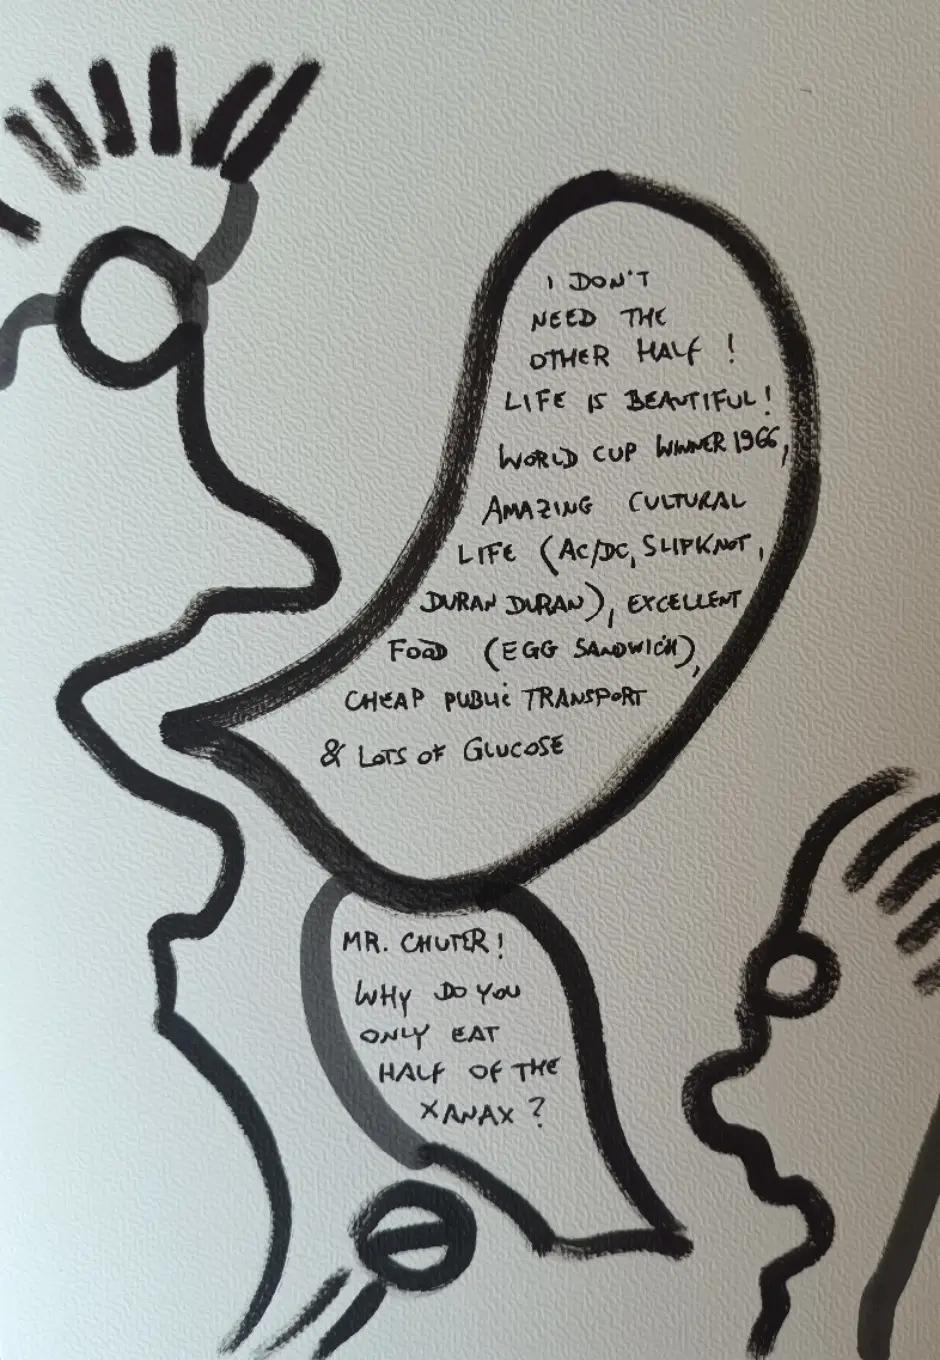 I DON'T
NEED THE
OTHER HALF !
LIFE IS BEAUTIFUL!
WORLD CUP WINNER 1966,
AMAZING CULTURAL
LIFE (AC/DC, SLIPKNOT,
DURAN DURAN), EXCELLENT
FOOD (EGG SANDWICH),
CHEAP PUBLIC TRANSPORT
& LOTS OF GLUCOSE
MR. CHUTER!
WHY DO YOU
ONLY EAT
HALF OF THE
XANAX ?